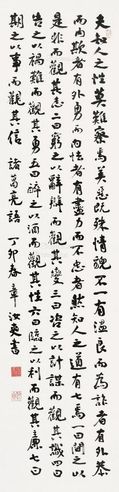 夫知人之性莫難察焉美惡既殊情貌不一有溫良而為詐者有外恭
而內欺者有外勇而內怯者有盡力而不忠者然知人之道有七焉一曰間之以
是非而觀其志二曰窮之以辭辯而觀其變三曰咨之以計謀而觀其識四曰
告之以禍難而觀其勇五曰醉之以酒而觀其性六曰臨之以利而觀其廉七曰
期之以事而觀其信 諸葛亮語 丁卯春 章汝奭書